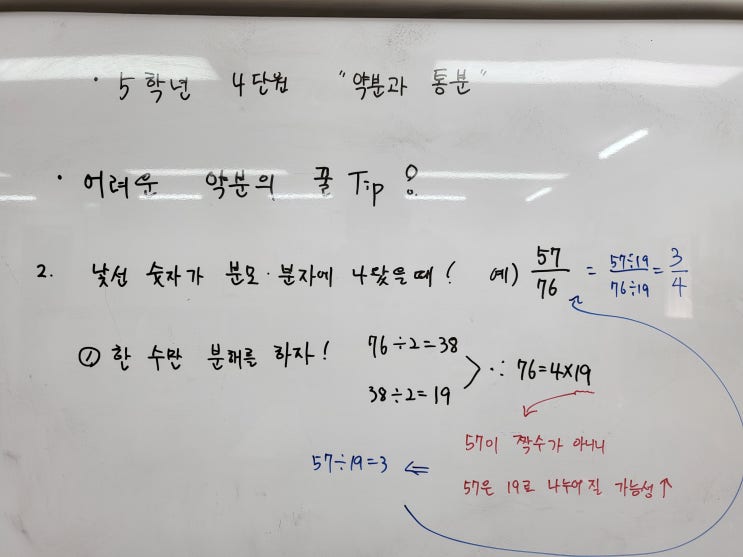 · 5학년 4단원 "약분과 통분"
· 어려운 약분의 꿀 Tip !
2. 낯선 숫자가 분모·분자에 나왔을때! 예) 57/76 = 57÷19/76÷19 = 3/4
① 한 수만 분해를 하자!
76÷2=38
38÷2=19
∴ 76=4×19
57이 짝수가 아니니
57은 19로 나누어 질 가능성↑
57÷19=3 ⇐